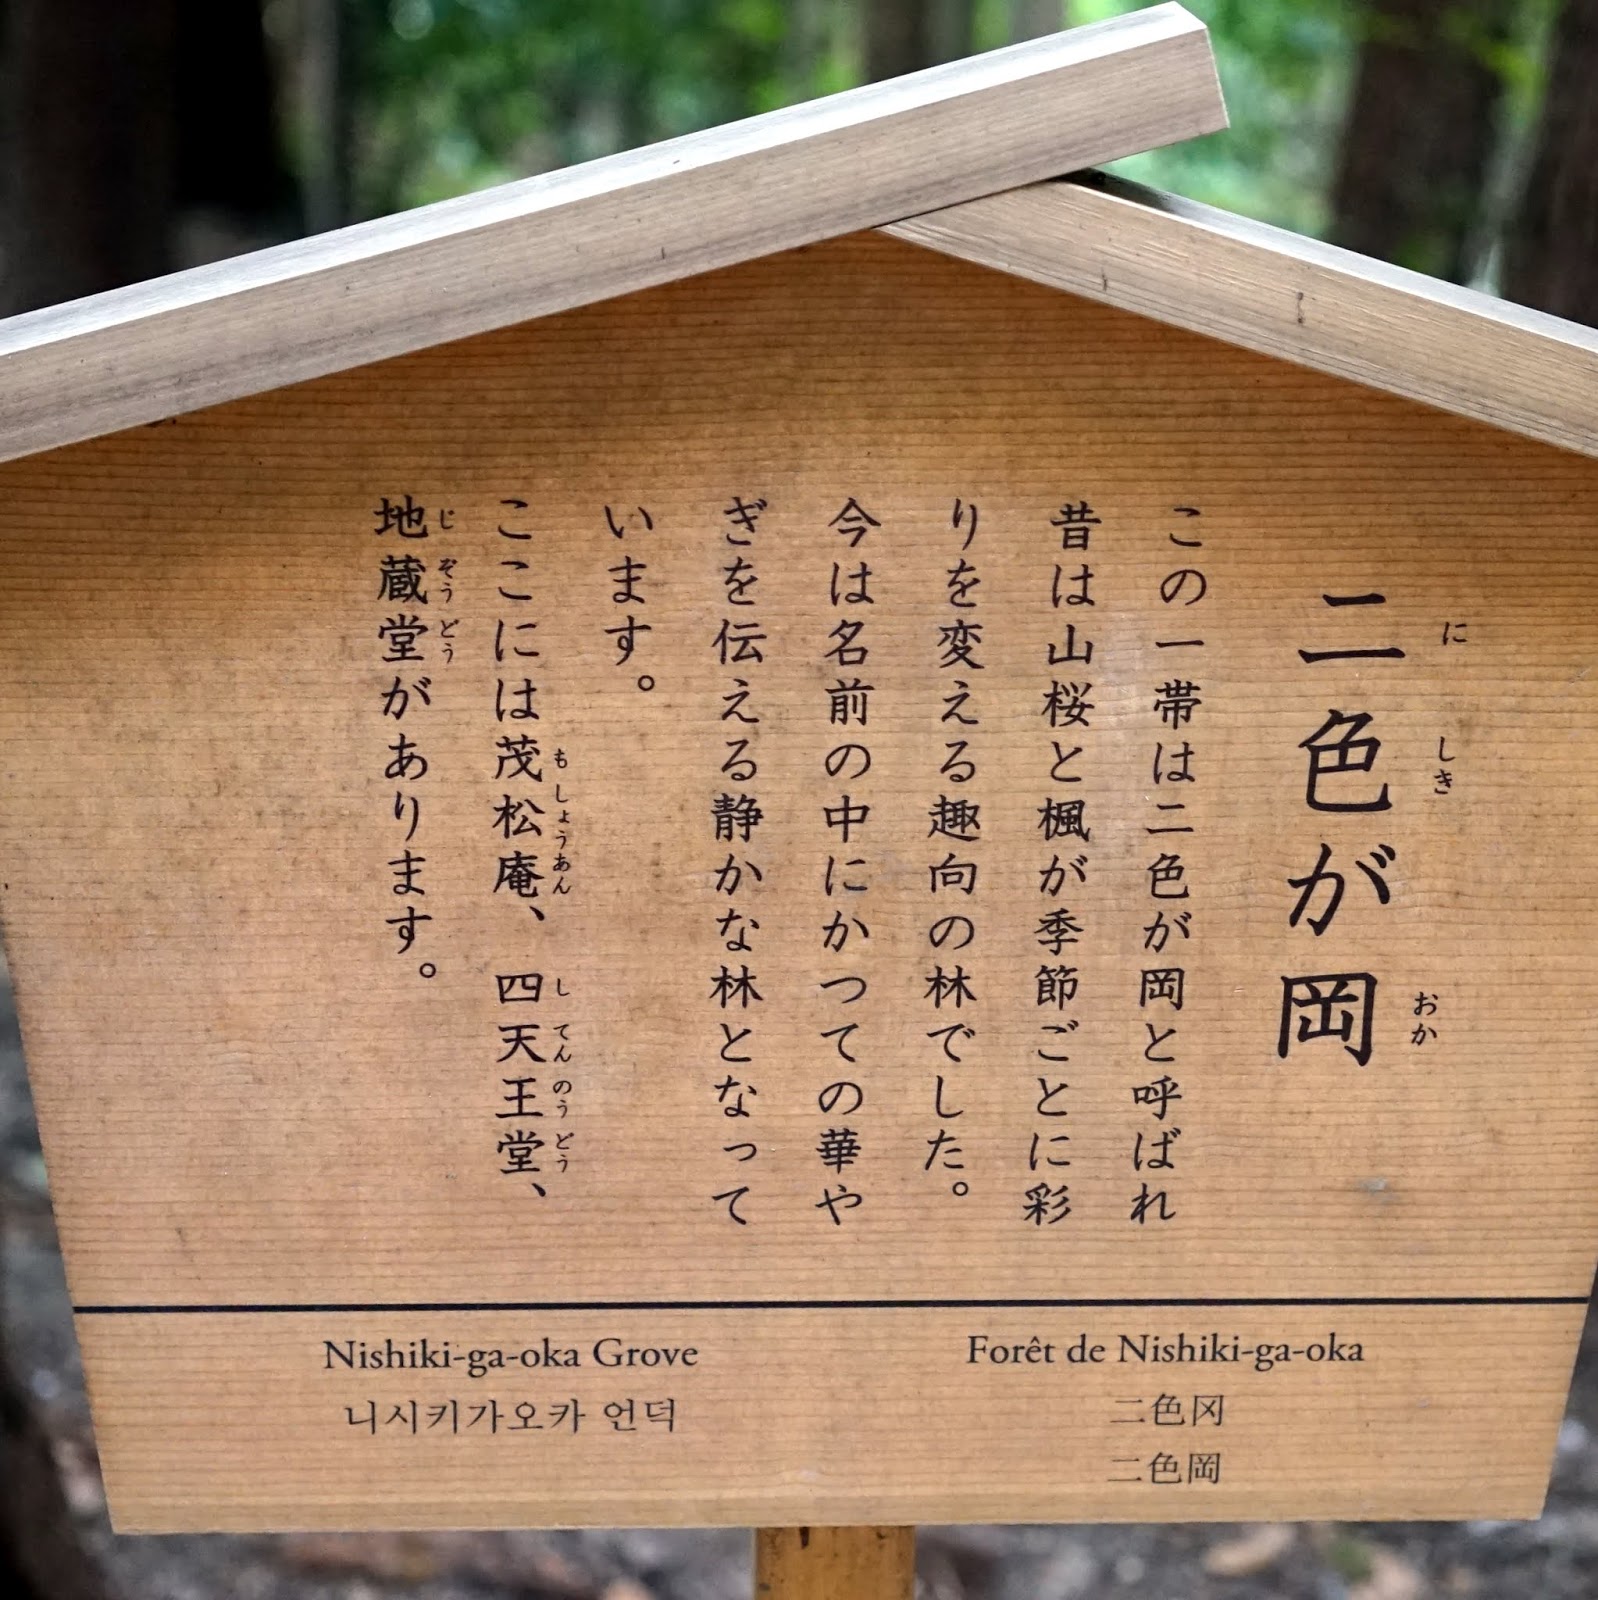 二色が岡
にしきおか
この一帯は二色が岡と呼ばれ
昔は山桜と楓が季節ごとに彩
りを変える趣向の林でした。
今は名前の中にかつての華や
ぎを伝える静かな林となって
います。
ここには茂松庵、四天王堂、
もしょうあんしてんのうどう
地蔵堂があります。
じぞうどう
Nishiki-ga-oka Grove
니시키가오카 언덕
Forêt de Nishiki-ga-oka
二色冈
二色岡